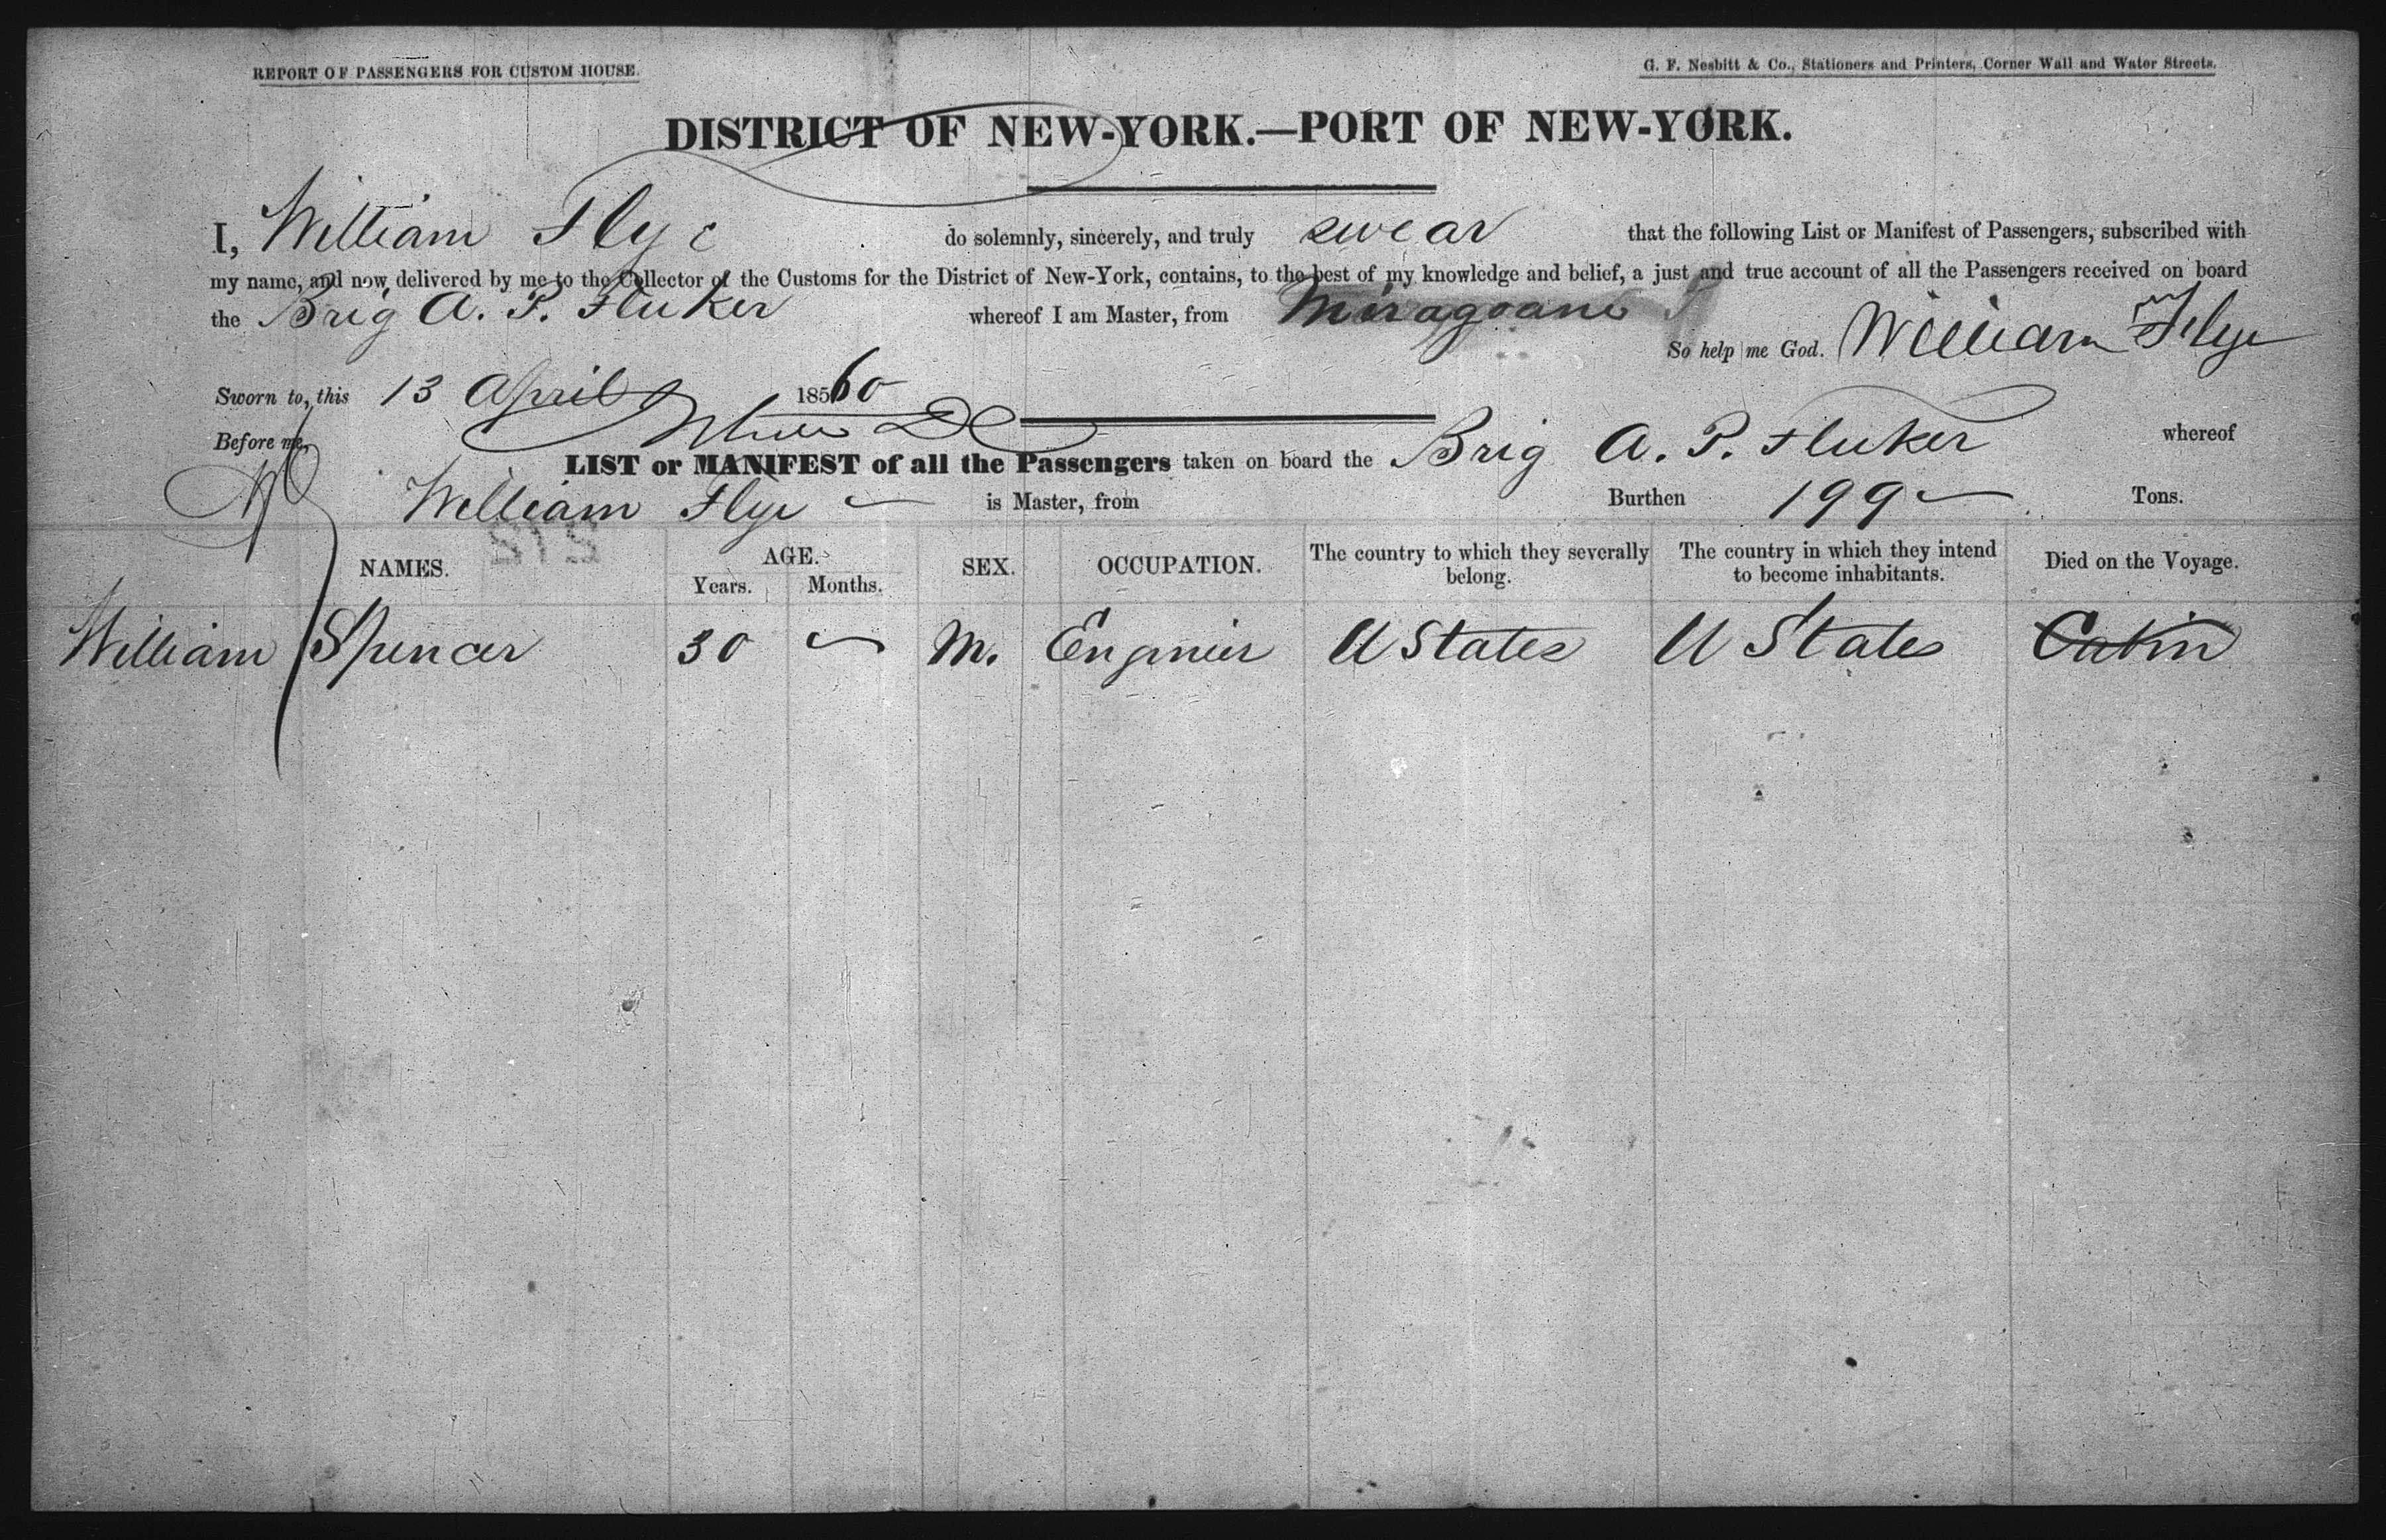 REPORT OF PASSENGERS FOR CUSTOM HOUSE.
G. F. Nesbitt & Co., Stationers and Printers, Corner Wall and Water Streets.
DISTRICT OF NEW-YORK.—PORT OF NEW-YORK.
I, William Flye do solemnly, sincerely, and truly swear that the following List or Manifest of Passengers, subscribed with
my name, and now delivered by me to the Collector of the Customs for the District of New-York, contains, to the best of my knowledge and belief, a just and true account of all the Passengers received on board
the Brig A. P. Fluker whereof I am Master, from Miragoane
So help me God. William Flye
Sworn to, this 13 April 18560
Before me,
LIST or MANIFEST of all the Passengers taken on board the Brig A. P. Fluker whereof
William Flye is Master, from Burthen 199 Tons.
NAMES. AGE. Years. Months. SEX. OCCUPATION. The country to which they severally belong. The country in which they intend to become inhabitants. Died on the Voyage.
William Spencer 30 M. Enginier U States U States Cabin